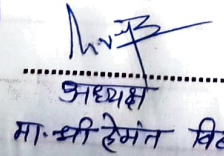 अध्यक्ष
मा. श्री हेमंत वि